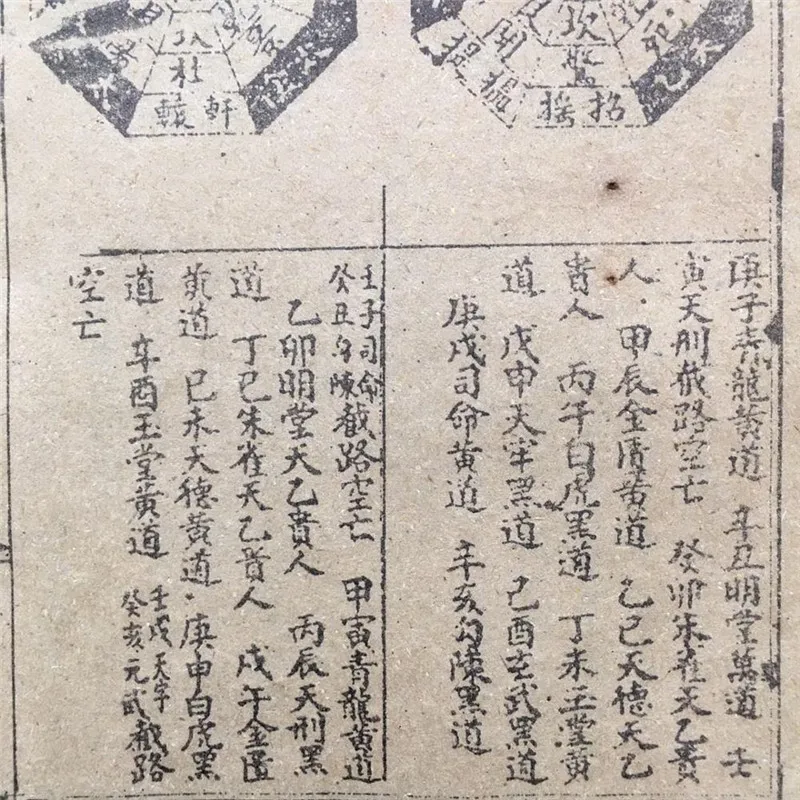 坎
驚
招搖
開
死
杜
軒轅
庚子青龍黄道 辛丑明堂萬道 壬
寅天刑截路空亡 癸卯朱雀天乙貴
人 甲辰金匱黄道 乙巳天德天乙
貴人 丙午白虎黑道 丁未玉堂黄
道 戊申天牢黑道 己酉玄武黑道
庚戌司命黄道 辛亥勾陳黑道
壬子司命癸丑勾陳截路空亡 甲寅青龍黄道
乙卯明堂天乙貴人 丙辰天刑黑
道 丁巳朱雀天乙貴人 戊午金匱
黄道 己未天德黄道 庚申白虎黑
道 辛酉玉堂黄道 壬戌天牢癸亥元武截路
空亡